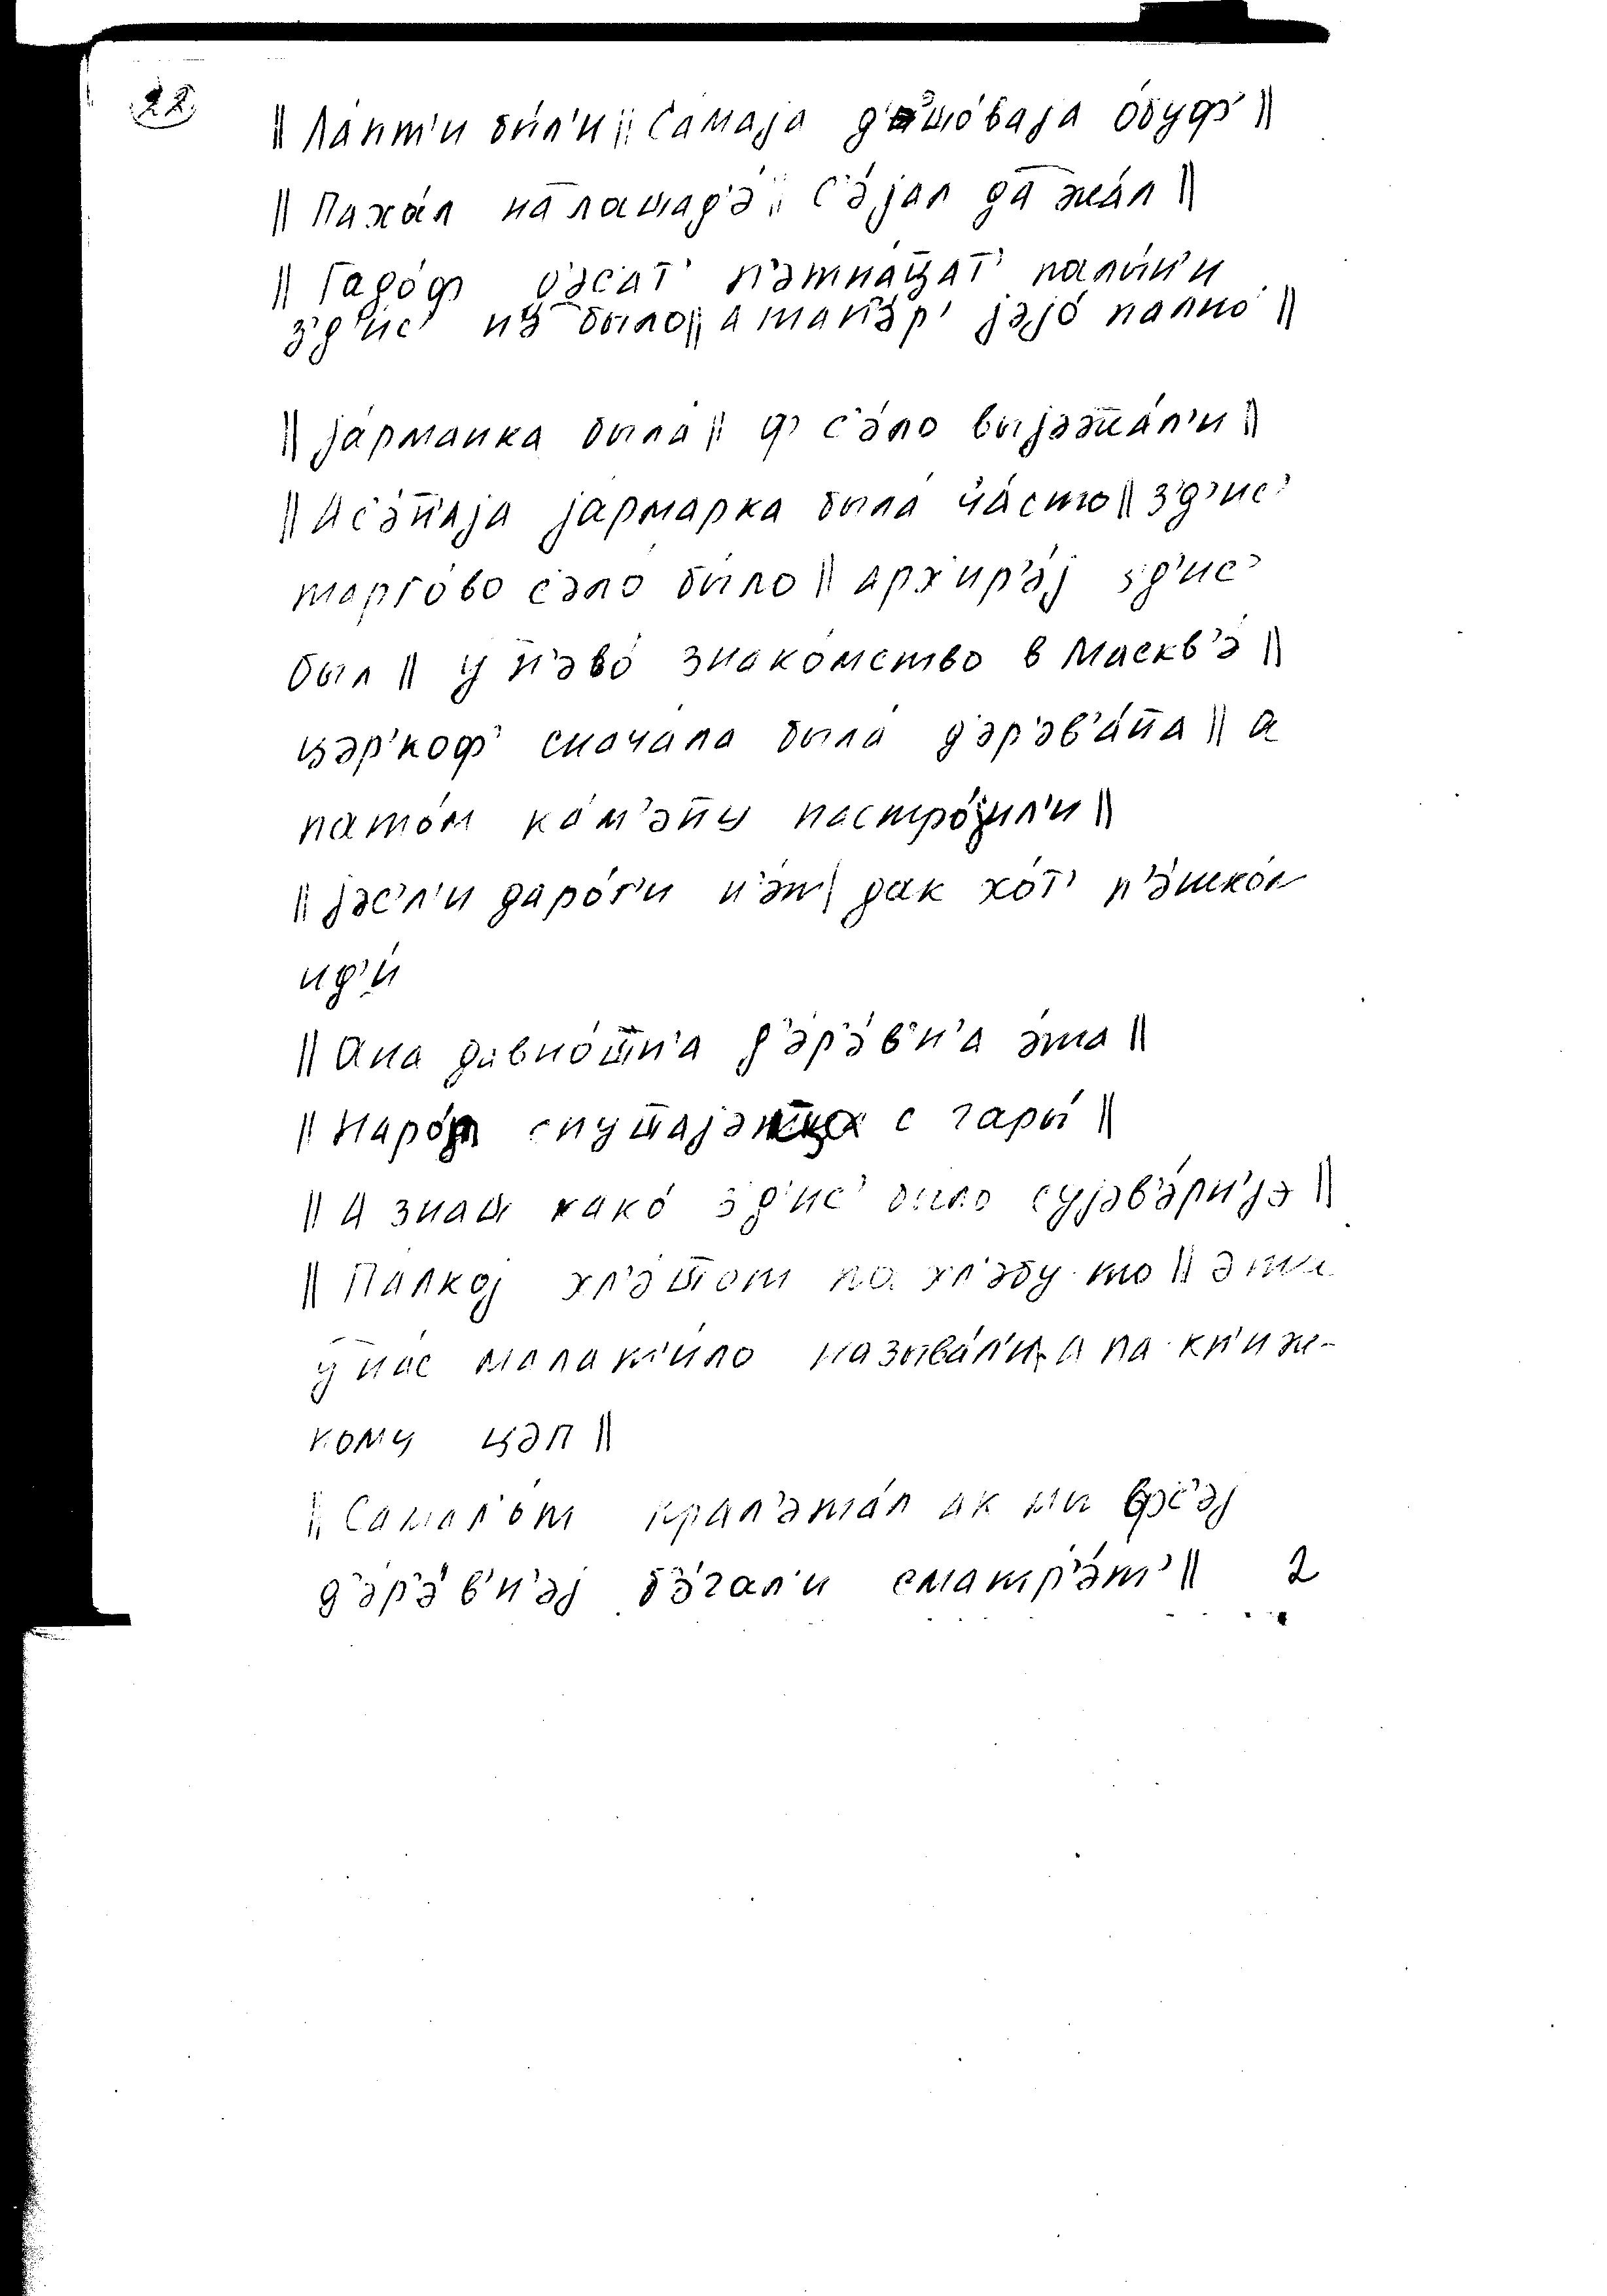 22
‖ Ла́пт'и бы́л'и ‖ Са́маја д'эшо́ваја о́буф' ‖
‖ Паха́л на лошад'э́ ‖ С'э́јал да жа́л ‖
‖ Гадо́ф д'эс'ат' п'этна́цат' палы́н'и
з'д'ис' н'э было ‖ А тап'э́р' јэјо́ пално́ ‖
‖ ја́рманка была́ ‖ ф с'эло выјэжа́л'и ‖
‖ Ас'э́н'аја ја́рмарка была́ ча́сто ‖ з'д'ис'
торго́во с'эло́ бы́ло ‖ арх'ир'э́ј з'д'ис'
был ‖ у н'эво́ знако́мство в Маскв'э́ ‖
цэр'коф' снача́ла была́ д'эр'эв'а́на ‖ а
пато́м ка́м'эну постро́јил'и ‖
‖ јэс'л'и даро́г'и н'эт | дак хо́т' п'эшко́м
ид'и́
‖ Ана давно́шн'а д'эр'э́в'н'а э́та ‖
‖ Наро́д с гары́ ‖
‖ А знаш како́ з'д'ис' было сујэв'э́рн'јэ ‖
‖ Па́лкој хл'э́шот па хл'эбу-то ‖ эта
у нас малат'и́ло называ́л'и, а па-кн'иж-
кому цэп ‖
‖ Самол'о́т прал'эта́л ак мы фс'эј
д'эр'э́в'н'эј б'э́гал'и сматр'э́т' ‖ 2